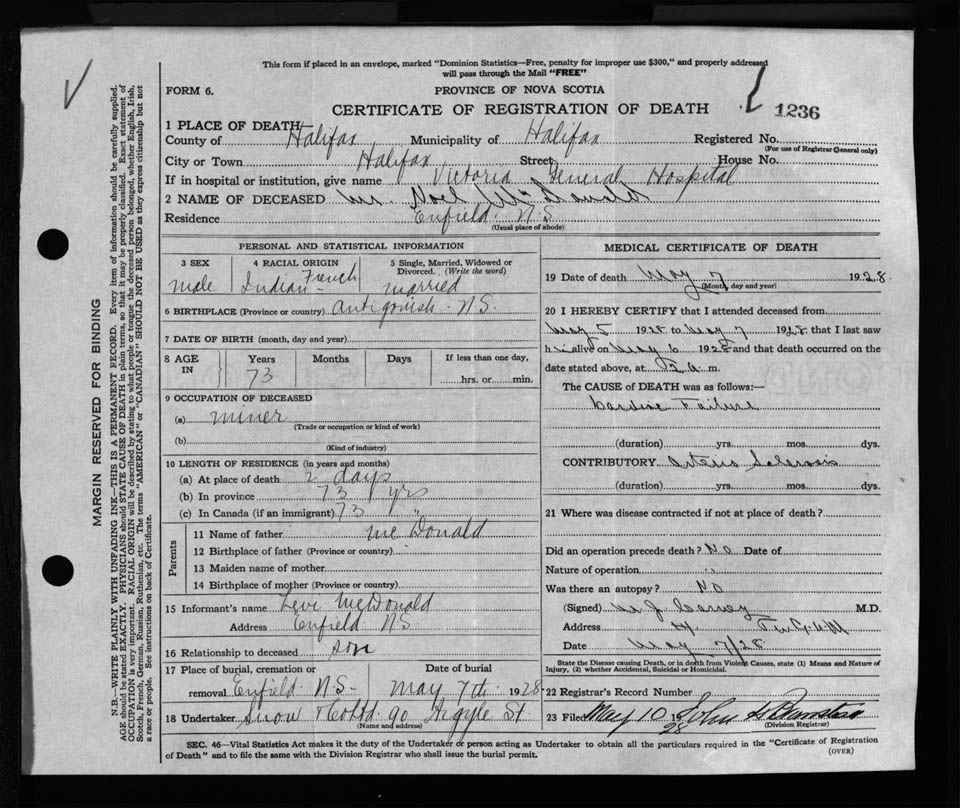 This form if placed in an envelope, marked "Dominion Statistics—Free, penalty for improper use $300," and properly addressed
will pass through the Mail "FREE"
FORM 6.
PROVINCE OF NOVA SCOTIA
CERTIFICATE OF REGISTRATION OF DEATH
1236
1 PLACE OF DEATH
County of Halifax Municipality of Halifax Registered No.
(For use of Registrar General only)
City or Town Halifax Street House No.
If in hospital or institution, give name Victoria General Hospital
2 NAME OF DECEASED Mr. Noel McDonald
Residence Enfield N.S
(Usual place of abode)
PERSONAL AND STATISTICAL INFORMATION
3 SEX
male
4 RACIAL ORIGIN
Indian French
5 Single, Married, Widowed or
Divorced. (Write the word)
married
6 BIRTHPLACE (Province or country) Antigonish - N.S.
7 DATE OF BIRTH (month, day and year)
8 AGE IN Years Months Days If less than one day,
73 hrs. or min.
9 OCCUPATION OF DECEASED
(a) miner
(Trade or occupation or kind of work)
(b)
(Kind of industry)
10 LENGTH OF RESIDENCE (in years and months)
(a) At place of death 2 days
(b) In province 73 yrs
(c) In Canada (if an immigrant) 73 "
Parents
11 Name of father McDonald
12 Birthplace of father (Province or country)
13 Maiden name of mother
14 Birthplace of mother (Province or country)
15 Informant's name Levi McDonald
Address Enfield NS
16 Relationship to deceased son
17 Place of burial, cremation or Date of burial
removal Enfield NS- May 7th 1928
18 Undertaker Snow & Co Ltd 90 Argyle St
(Name and address)
MEDICAL CERTIFICATE OF DEATH
19 Date of death May 7 1928.
(Month, day and year)
20 I HEREBY CERTIFY that I attended deceased from
May 5 1928 to May 7 1928 that I last saw
him alive on May 6 1928 and that death occurred on the
date stated above, at a m.
The CAUSE of DEATH was as follows:—
Cardiac Failure
(duration) yrs. mos. dys.
CONTRIBUTORY Arterio Sclerosis
(duration) yrs. mos. dys.
21 Where was disease contracted if not at place of death?
Did an operation precede death? No Date of
Nature of operation "
Was there an autopsy? NO
(Signed) M.D.
Address
Date May 7/28
State the Disease causing Death, or in death from Violent Causes, state (1) Means and Nature of
Injury, (2) whether Accidental, Suicidal or Homicidal.
22 Registrar's Record Number
23 Filed May 10 1928 John
(Division Registrar)
SEC. 46—Vital Statistics Act makes it the duty of the Undertaker or person acting as Undertaker to obtain all the particulars required in the "Certificate of Registration
of Death" and to file the same with the Division Registrar who shall issue the burial permit.
(OVER)
MARGIN RESERVED FOR BINDING
N.B.—WRITE PLAINLY WITH UNFADING INK—THIS IS A PERMANENT RECORD. Every item of information should be carefully supplied.
AGE should be stated EXACTLY. PHYSICIANS should STATE CAUSE OF DEATH in plain terms, so that it may be properly classified. Exact statement of
OCCUPATION is very important. RACIAL ORIGIN will be described by stating to what people or tongue the deceased person belonged, whether English, Irish,
Scotch, French, German, Russian, Ruthenian, etc. The terms "AMERICAN" or "CANADIAN" SHOULD NOT BE USED as they express citizenship but not
a race or people. See instructions on back of Certificate.